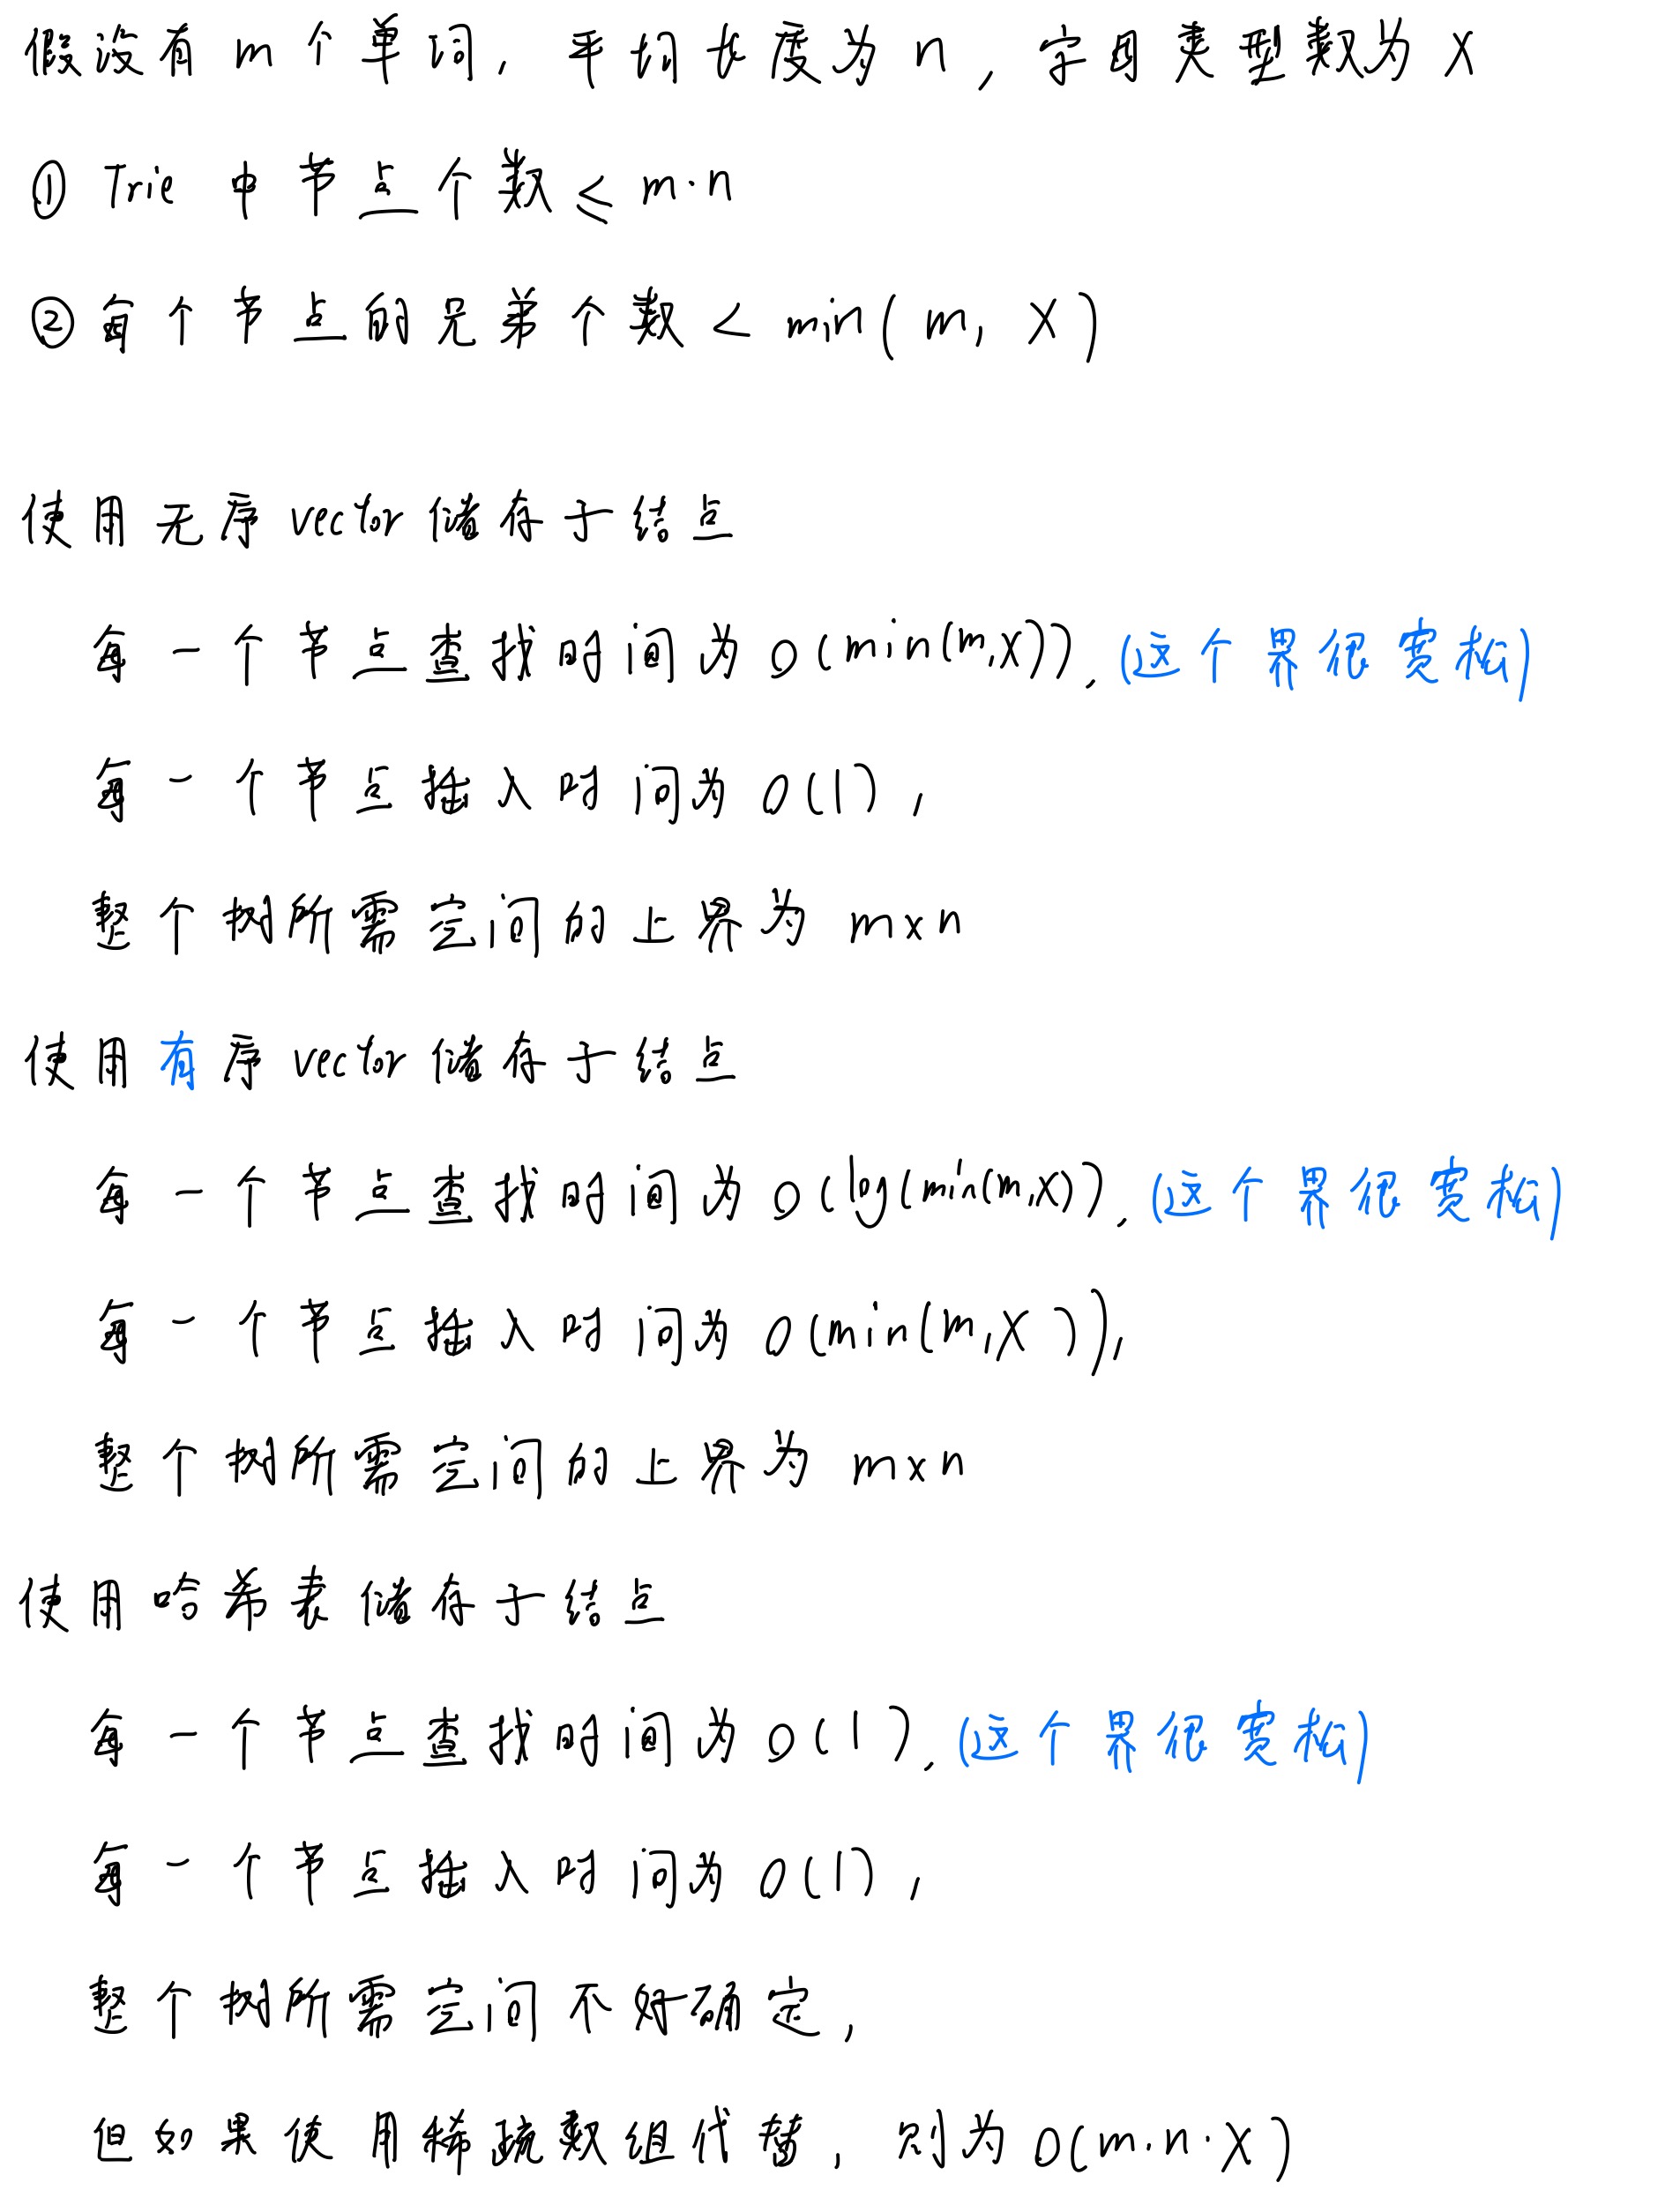 假设有 m 个单词, 平均长度为 n, 字母类型数为 X
① Trie 中节点个数 ≤ m·n
② 每个节点的兄弟个数 < min(m, X)
使用无序 vector 储存于结点
每一个节点查找时间为 O(min(m,X)), (这个界很宽松)
每一个节点插入时间为 O(1),
整个树所需空间的上界为 m×n
使用有序 vector 储存于结点
每一个节点查找时间为 O(lg(min(m,X)), (这个界很宽松)
每一个节点插入时间为 O(min(m,X)),
整个树所需空间的上界为 m×n
使用哈希表储存于结点
每一个节点查找时间为 O(1), (这个界很宽松)
每一个节点插入时间为 O(1),
整个树所需空间不好确定,
但如果使用稀疏数组代替, 则为 O(m·n·X)